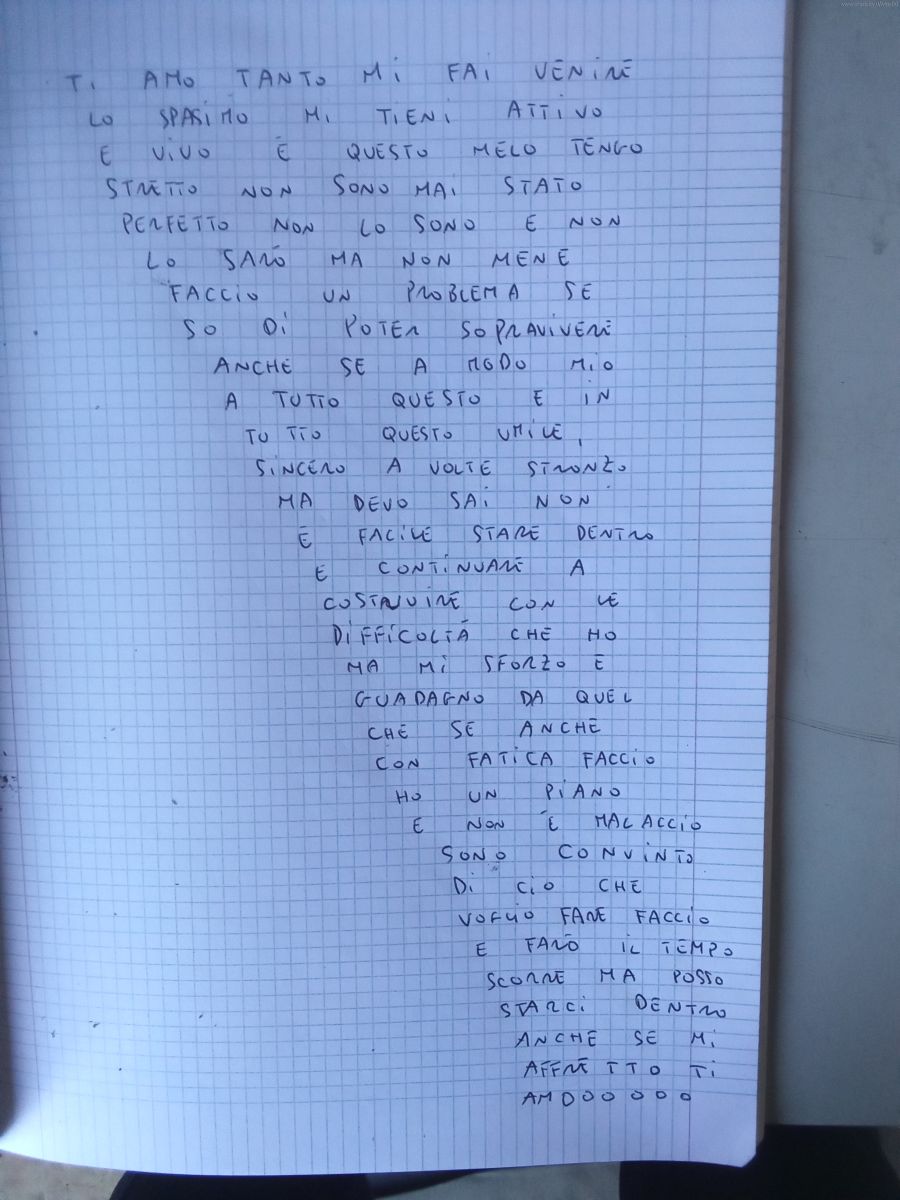 TI AMO TANTO MI FAI VENIRE
LO SPASIMO MI TIENI ATTIVO
E VIVO E QUESTO MELO TENGO
STRETTO NON SONO MAI STATO
PERFETTO NON LO SONO E NON
LO SARÒ MA NON MENE
FACCIO UN PROBLEMA SE
SO DI POTER SOPRAVIVERE
ANCHE SE A MODO MIO
A TUTTO QUESTO E IN
TUTTO QUESTO UMILE,
SINCERO A VOLTE STRONZO
MA DEVO SAI NON
È FACILE STARE DENTRO
E CONTINUARE A
COSTRUIRE CON LE
DIFFICOLTÀ CHE HO
MA MI SFORZO E
GUADAGNO DA QUEL
CHE SE ANCHE
CON FATICA FACCIO
HO UN PIANO
E NON È MALACCIO
SONO CONVINTO
DI CIO CHE
VOGLIO FARE FACCIO
E FARÒ IL TEMPO
SCORRE MA POSSO
STARCI DENTRO
ANCHE SE MI
AFFRETTO TI
AMOOOOOO